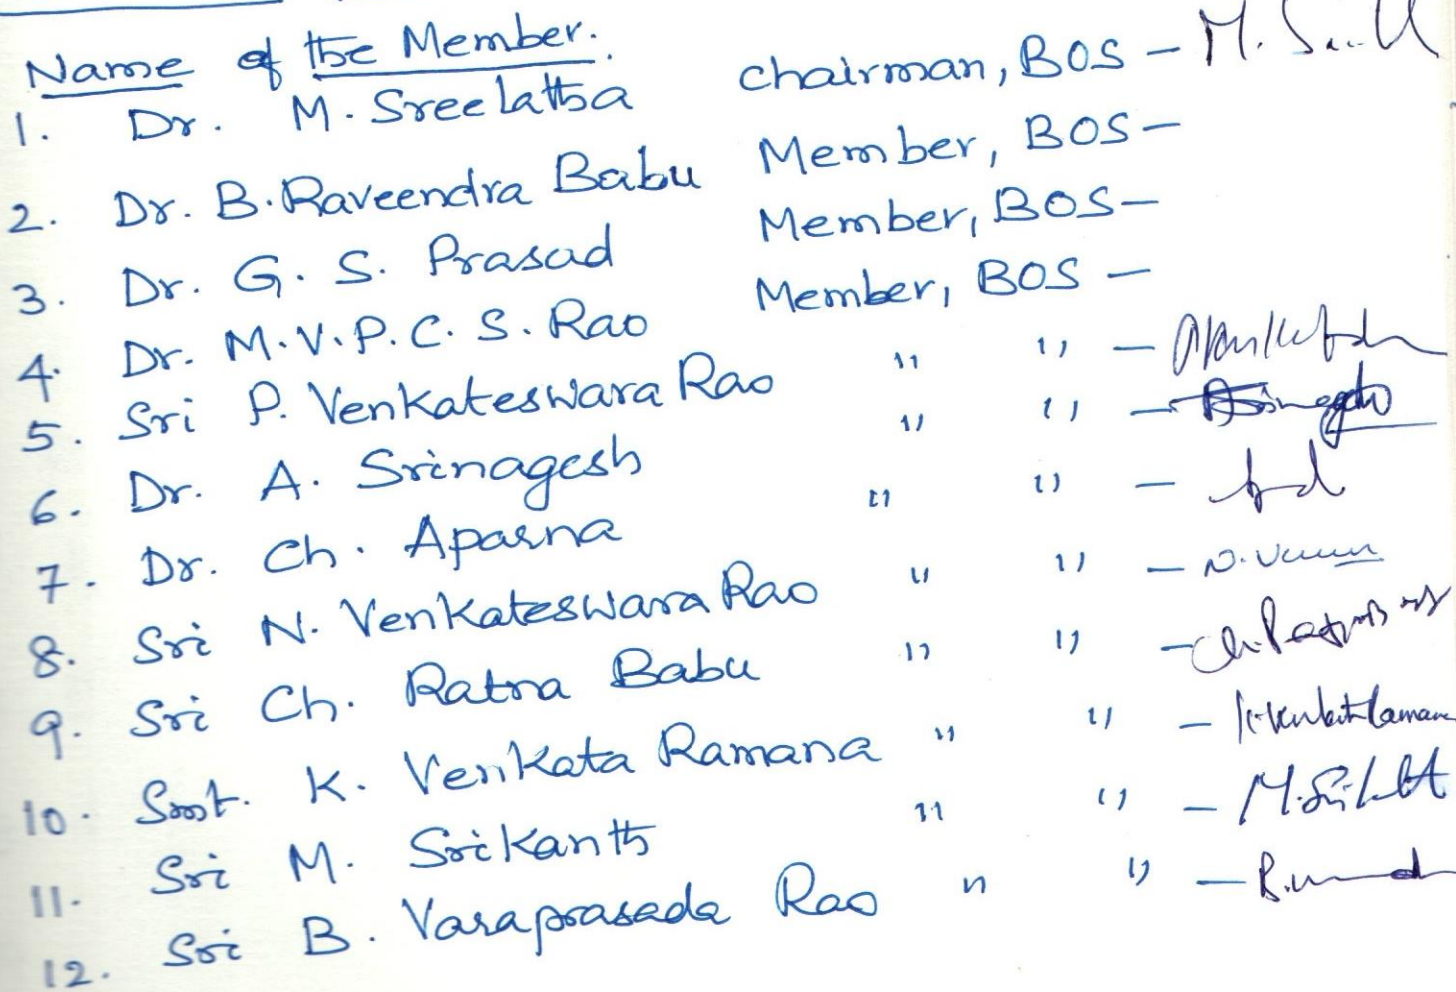 Name of the Member.
1. Dr. M. Sreelatha Chairman, BOS -
2. Dr. B. Raveendra Babu Member, BOS -
3. Dr. G. S. Prasad Member, BOS -
4. Dr. M.V.P.C.S. Rao Member, BOS -
5. Sri P. Venkateswara Rao " " -
6. Dr. A. Srinagesh " " -
7. Dr. Ch. Aparna " " -
8. Sri N. Venkateswara Rao " " -
9. Sri Ch. Ratna Babu " " -
10. Smt. K. Venkata Ramana " " -
11. Sri M. Srikanth " " -
12. Sri B. Varaprasada Rao " " -